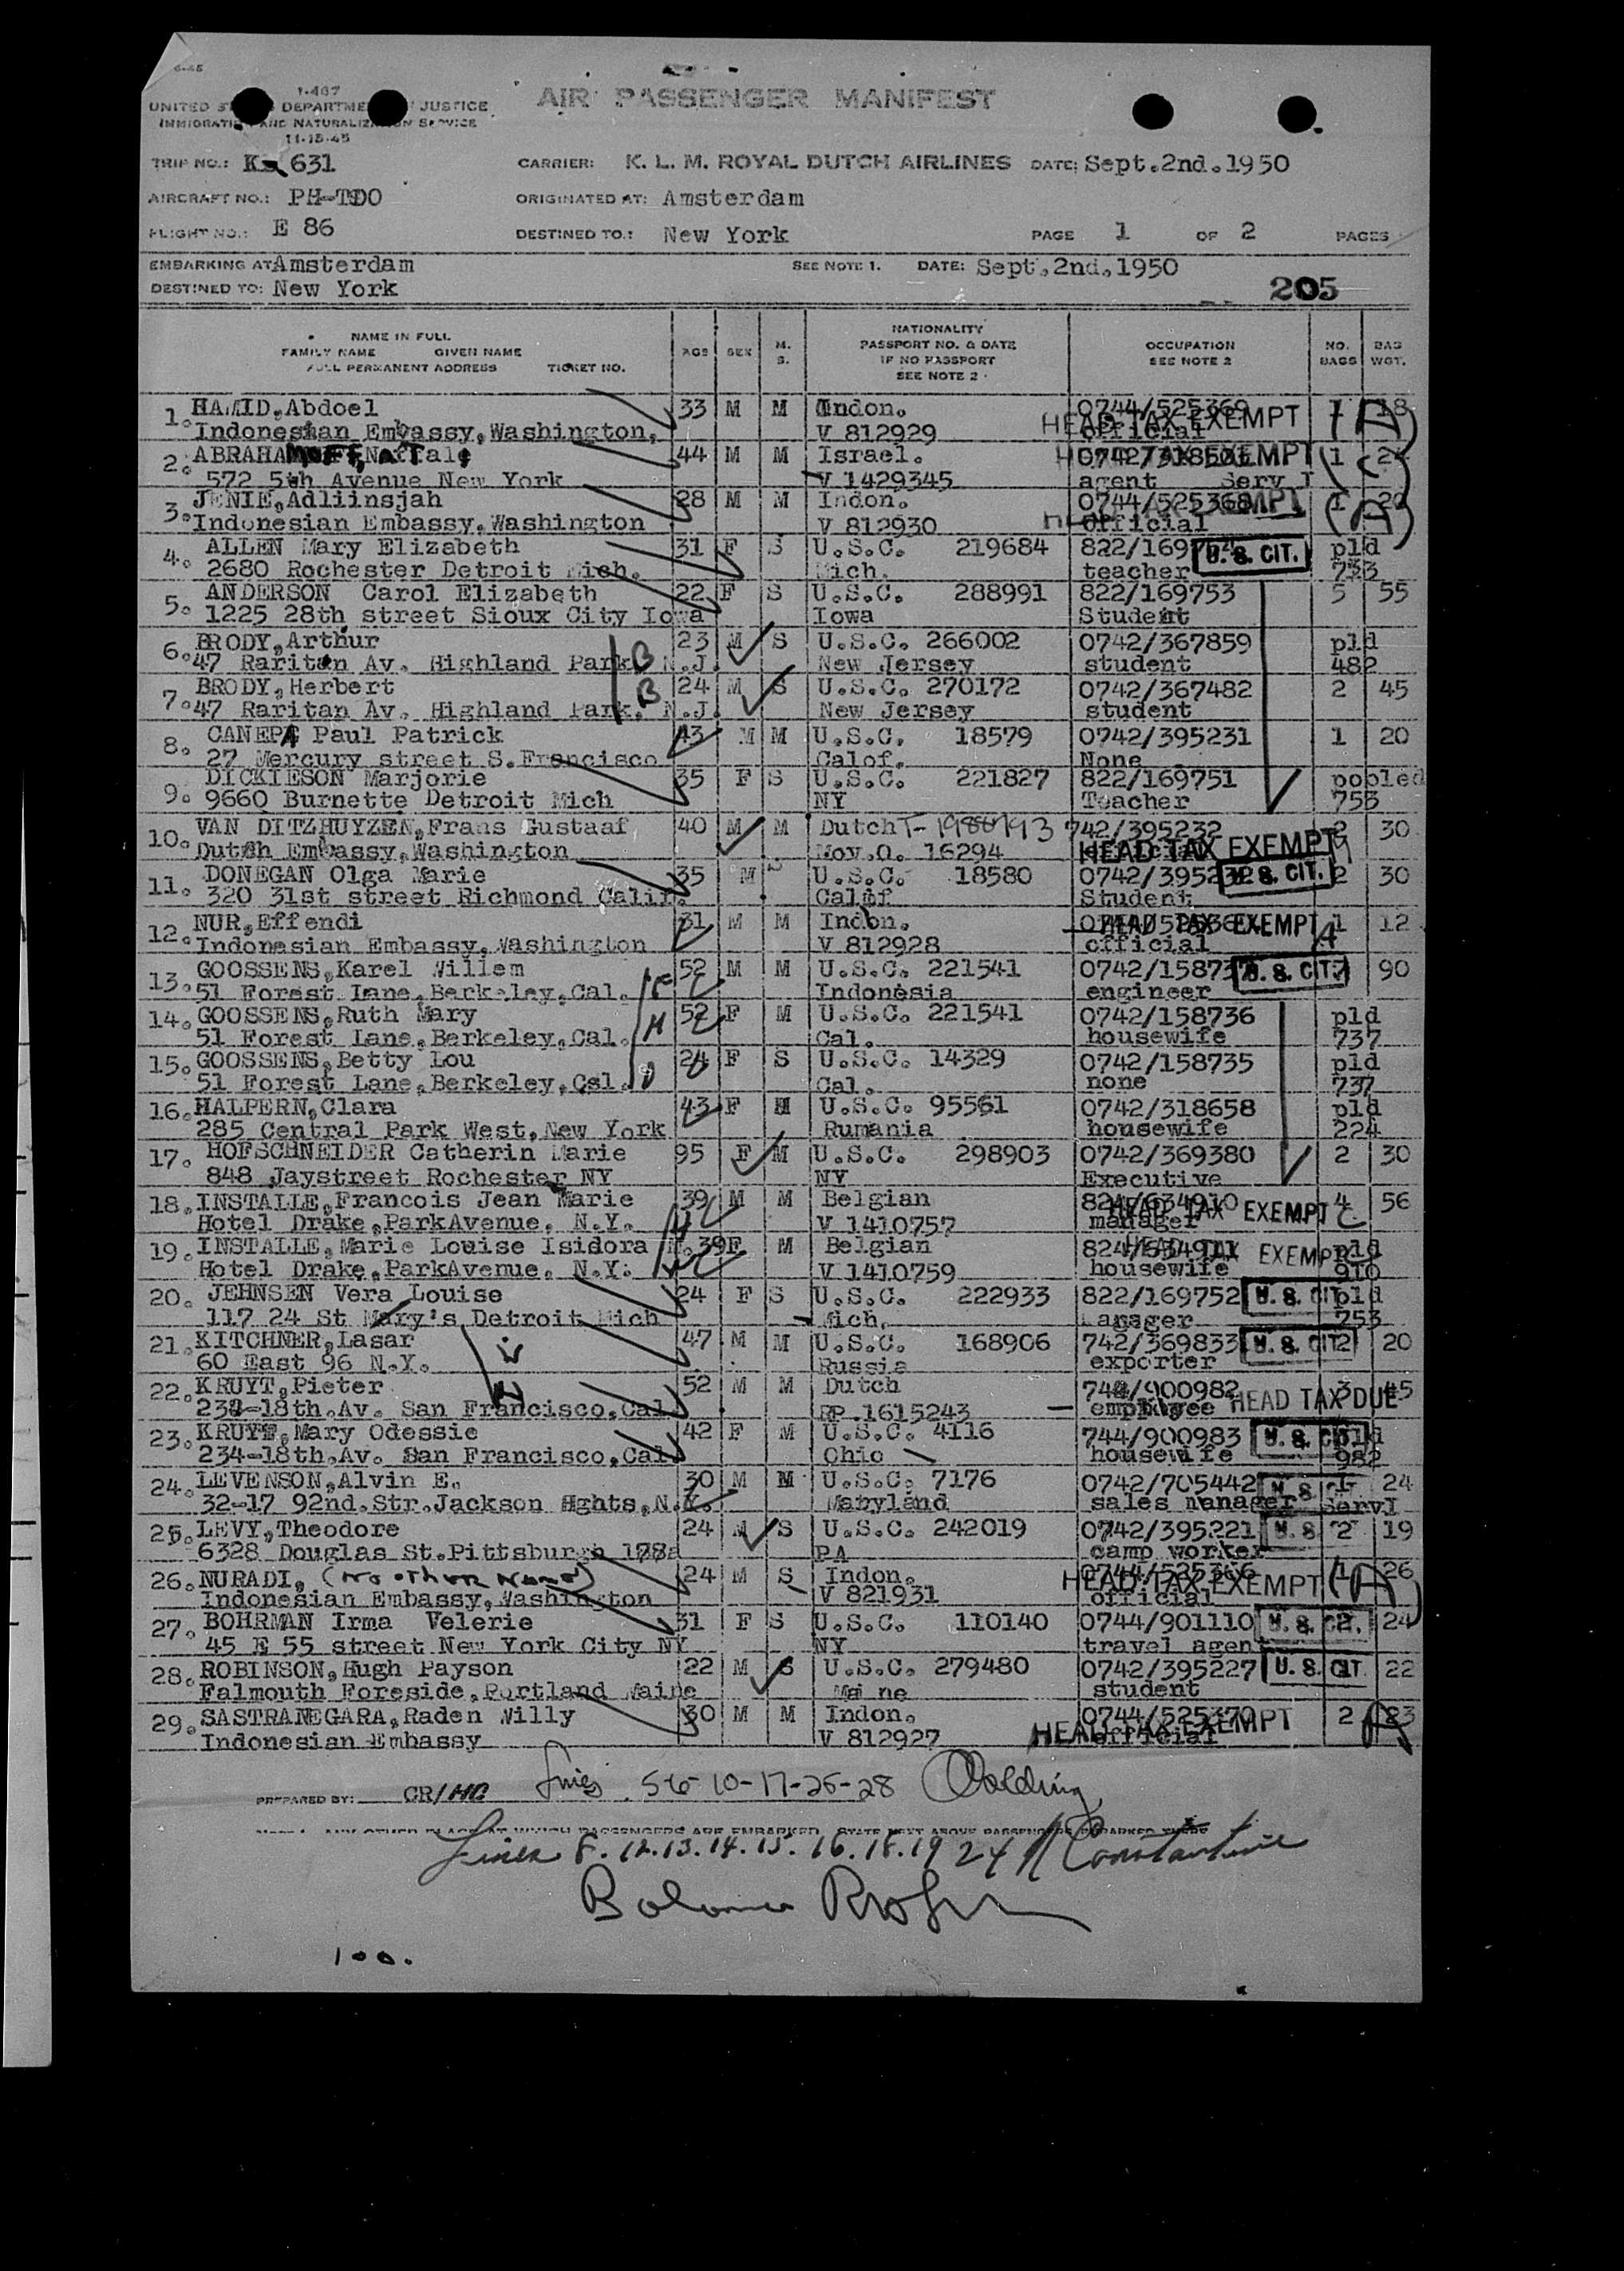 6-45
I-467
UNITED DEPARTME JUSTICE
IMMIGRATI AND NATURALIZATION SERVICE
11-15-45
AIR PASSENGER MANIFEST
TRIP NO.: K- 631 CARRIER: K. L. M. ROYAL DUTCH AIRLINES DATE: Sept.2nd.1950
AIRCRAFT NO.: ORIGINATED AT: Amsterdam
FLIGHT NO.: E 86 DESTINED TO.: New York PAGE 1 OF 2 PAGES
EMBARKING AT Amsterdam SEE NOTE 1. DATE: Sept.2nd.1950
DESTINED TO: New York 205
NAME IN FULL
FAMILY NAME GIVEN NAME
FULL PERMANENT ADDRESS TICKET NO.
AGE SEX M. S.
NATIONALITY
PASSPORT NO. & DATE
IF NO PASSPORT
SEE NOTE 2
OCCUPATION
SEE NOTE 2
NO. BAGS
BAG WGT.
1. HAMID,Abdoel 33 M M Indon. 0744/525369 HEAD TAX EXEMPT 1 18 (A)
Indonesian Embassy,Washington, V 812929 official
2. 44 M M Israel. HEAD TAX EXEMPT 1
572 5th Avenue New York V 1429345 agent Serv I
3. JENIE,Adliinsjah 28 M M Indon. 0744/525368 1 20 (A)
Indonesian Embassy,Washington V 812930 official
4. ALLEN Mary Elizabeth 31 F S U.S.C. 219684 U. S. CIT. pld
2680 Rochester Detroit Mich. Mich. teacher 733
5. ANDERSON Carol Elizabeth 22 F S U.S.C. 288991 822/169753 5 55
1225 28th street Sioux City Iowa Iowa Student
6. BRODY,Arthur 23 M S U.S.C. 266002 0742/367859 pld
47 Raritan Av. Highland Park, N.J. B New Jersey student 482
7. BRODY,Herbert 24 M S U.S.C. 270172 0742/367482 2 45
47 Raritan Av. Highland Park, N.J. B New Jersey student
8. CANEPA Paul Patrick 43 M M U.S.C. 18579 0742/395231 1 20
27 Mercury street S.Francisco Calof. None
9. DICKIESON Marjorie 35 F S U.S.C. 221827 822/169751 pooled
9660 Burnette Detroit Mich NY Teacher 753
10. VAN DITZHUYZEN,Frans Gustaaf 40 M M Dutch 742/395232 2 30
Dutch Embassy,Washington 16294 HEAD TAX EXEMPT
11. DONEGAN Olga Marie 35 M S U.S.C. 18580 U. S. CIT. 2 30
320 31st street Richmond Calif. Calif Student
12. NUR,Effendi 31 M M Indon. HEAD TAX EXEMPT 1 12
Indonesian Embassy,Washington V 812928 official A
13. GOOSSENS,Karel Willem 52 M M U.S.C. 221541 U. S. CIT. 90
51 Forest Lane,Berkeley,Cal. Indonesia engineer
14. GOOSSENS,Ruth Mary 52 F M U.S.C. 221541 0742/158736 pld
51 Forest Lane,Berkeley,Cal. Cal. housewife 737
15. GOOSSENS,Betty Lou 24 F S U.S.C. 14329 0742/158735 pld
51 Forest Lane,Berkeley,Csl. Cal. none 737
16. HALPERN,Clara 43 F M U.S.C. 95561 0742/318658 pld
285 Central Park West,New York Rumania housewife 224
17. HOFSCHNEIDER Catherin Marie 95 F M U.S.C. 298903 0742/369380 2 30
848 Jaystreet Rochester NY NY Executive
18. INSTALLE,Francois Jean Marie 39 M M Belgian 824/634910 4 56
Hotel Drake,ParkAvenue, N.Y. V 1410757 manager HEAD TAX EXEMPT
19. INSTALLE,Marie Louise Isidora 39 F M Belgian HEAD TAX EXEMPT pld
Hotel Drake,ParkAvenue, N.Y. V 1410759 housewife 910
20. JEHNSEN Vera Louise 24 F S U.S.C. 222933 822/169752 U. S. CIT pld
117 24 St Mary's Detroit Mich Mich. 753
21. KITCHNER,Lasar 47 M M U.S.C. 168906 742/369833 U. S. CIT 2 20
60 East 96 N.Y. Russia exporter
22. KRUYT,Pieter 52 M M Dutch 744/900982 HEAD TAX DUE 3 45
234-18th.Av. San Francisco,Cal RP.1615243 employee
23. KRUYT,Mary Odessie 42 F M U.S.C. 4116 744/900983 U. S. CIT pld
234-18th.Av. San Francisco,Cal Ohio housewife 982
24. LEVENSON,Alvin E. 30 M M U.S.C. 7176 0742/705442 U. S. 1 24
32-17 92nd.Str.Jackson Hghts,N.Y. Maryland sales manager ServI
25. LEVY,Theodore 24 M S U.S.C. 242019 0742/395221 U. S. 2 19
6328 Douglas St.Pittsburgh PA camp worker
26. NURADI, (no other name) 24 M S Indon. 0744/525366 1 26 (A)
Indonesian Embassy,Washington V 821931 official HEAD TAX EXEMPT
27. BOHRMAN Irma Velerie 31 F S U.S.C. 110140 0744/901110 U. S. CIT. 2 24
45 E 55 street New York City NY NY travel agent
28. ROBINSON,Hugh Payson 22 M S U.S.C. 279480 0742/395227 U. S. CIT. 22
Falmouth Foreside,Portland Maine Maine student
29. SASTRANEGARA,Raden Willy 30 M M Indon. 0744/525370 2 23
Indonesian Embassy V 812927 official HEAD TAX EXEMPT
PREPARED BY: CR/HC Lines 5-6-10-17-25-28
NOTE 1. ANY OTHER PLACE AT WHICH PASSENGERS ARE EMBARKED, STATE NEXT ABOVE PASSENGERS EMBARKED THERE
Lines 8.12.13.14.15.16.18.19 24 Constantine
100.